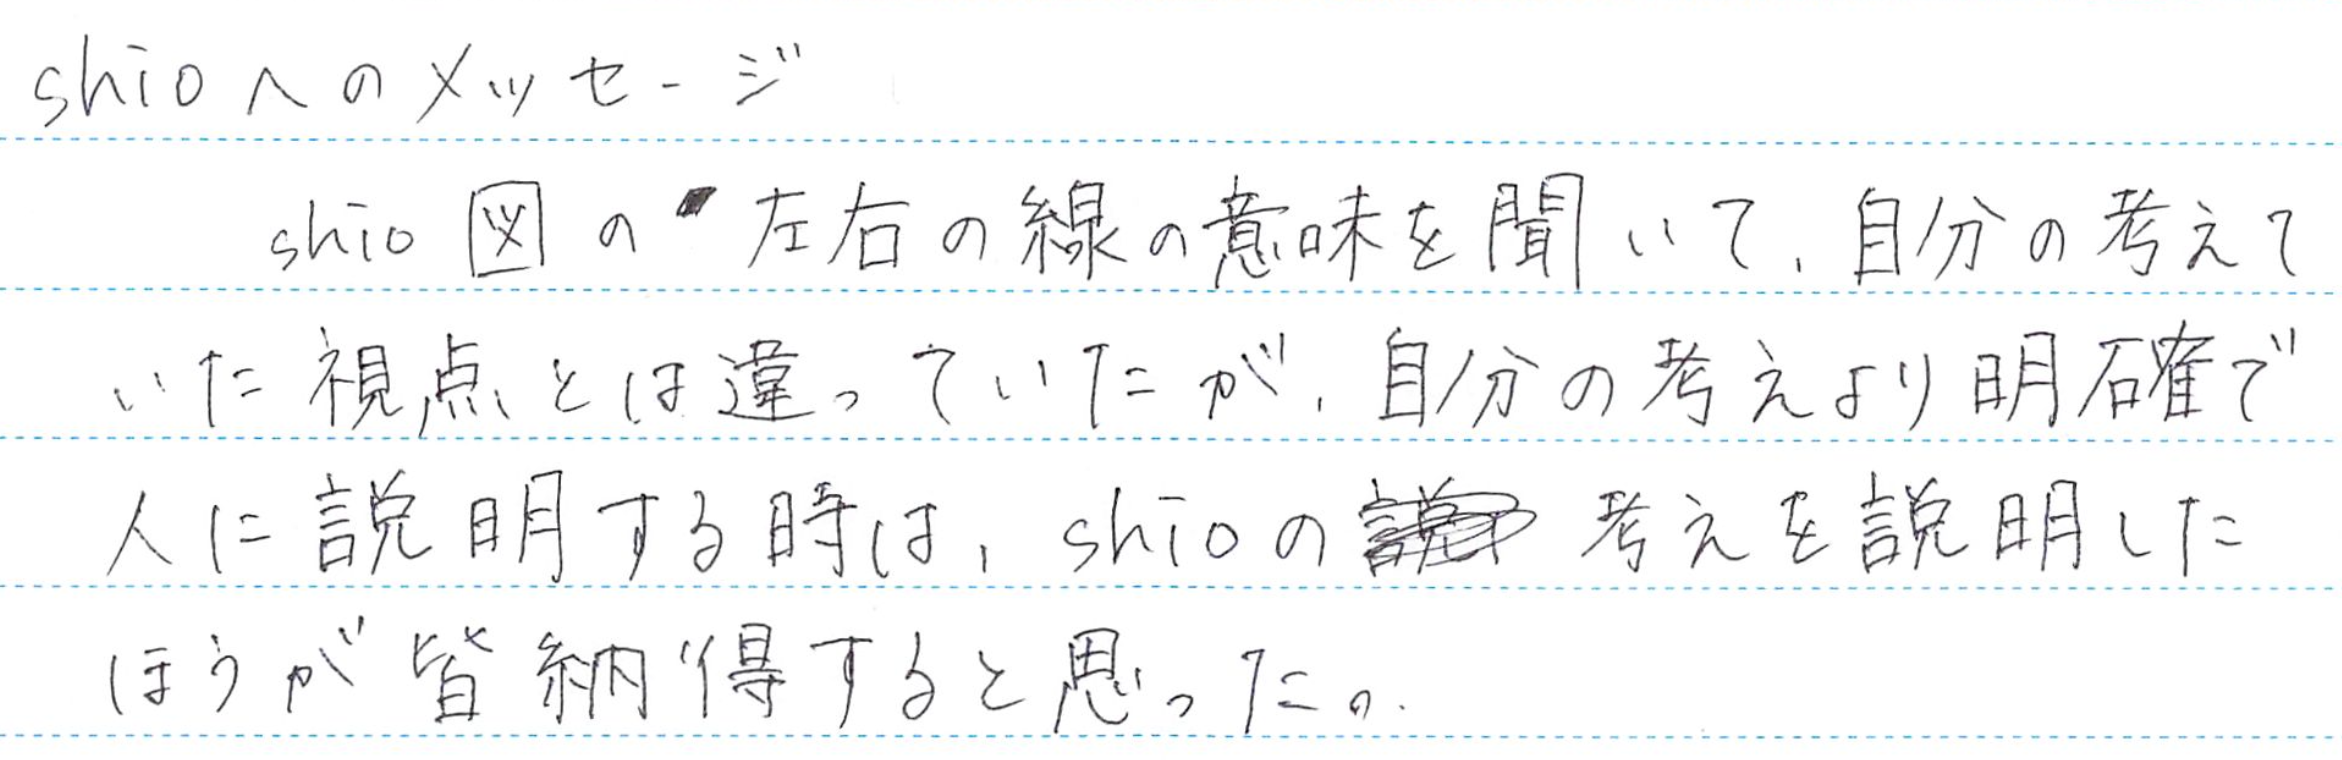 shioへのメッセージ
shio図の左右の線の意味を聞いて、自分の考えて
いた視点とは違っていたが、自分の考えより明確で
人に説明する時は、shioの考えを説明した
ほうが皆納得すると思った。